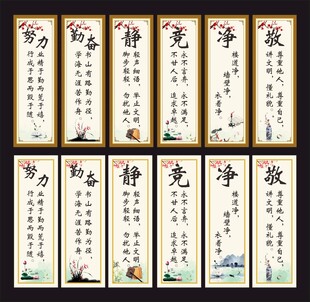 努力
业精于勤而荒于嬉
行成于思而毁于随
勤奋
书山有路勤为径，
学海无涯苦作舟
静
轻声细语，举止文明
脚步轻轻，勿扰他人
竞
永不言弃，永不满足，
不甘人后，追求卓越
净
楼道净，
墙壁净，
敬
尊重他人，尊重自己，
讲文明，懂礼貌
努力
业精于勤而荒于嬉
行成于思而毁于随
勤奋
书山有路勤为径，
学海无涯苦作舟
静
轻声细语，举止文明
脚步轻轻，勿扰他人
竞
永不言弃，永不满足，
不甘人后，追求卓越
净
楼道净，
墙壁净，
敬
尊重他人，尊重自己，
讲文明，懂礼貌